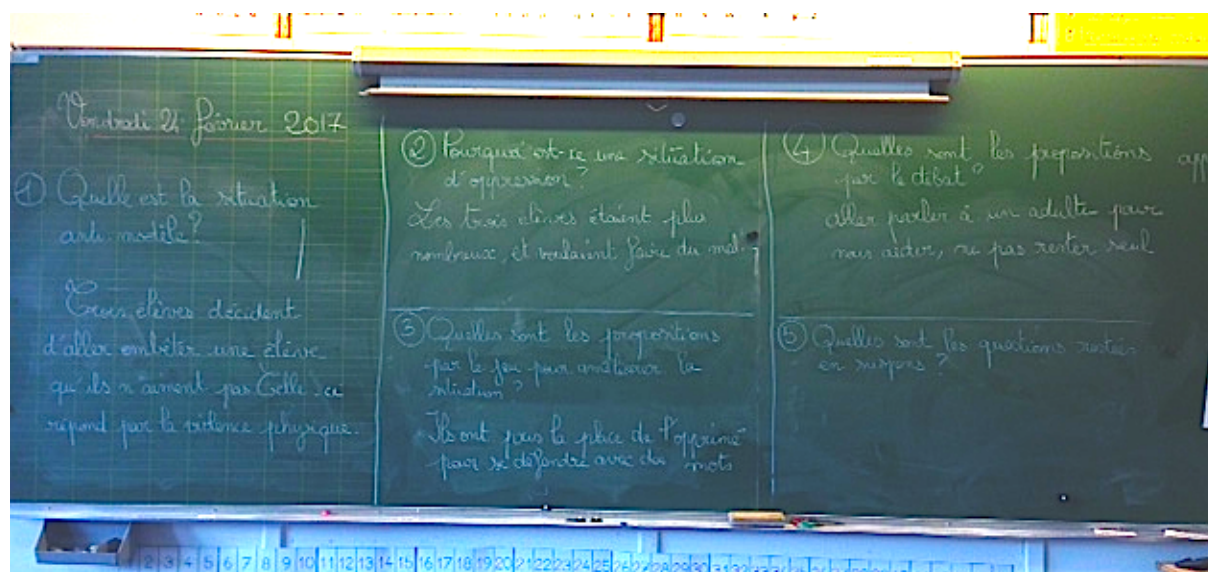 Vendredi 24 février 2017
① Quelle est la situation
anti-modèle?
Trois élèves décident
d'aller embêter une élève
qu'ils n'aiment pas. Celle-ci
répond par la violence physique.
② Pourquoi est-ce une situation
d'oppression?
Les trois élèves étaient plus
nombreux, et voulaient faire du mal.
③ Quelles sont les propositions
par le jeu pour améliorer la
situation?
Ils ont pris la place de l'opprimé
pour se défendre avec des mots
④ Quelles sont les propositions app
par le débat?
aller parler à un adulte pour
nous aider, ne pas rester seul
⑤ Quelles sont les questions restées
en suspens?
1 2 3 4 5 6 7 8 9 10 11 12 13 14 15 16 17 18 19 20 21 22 23 24 25 26 27 28 29 30 31 32